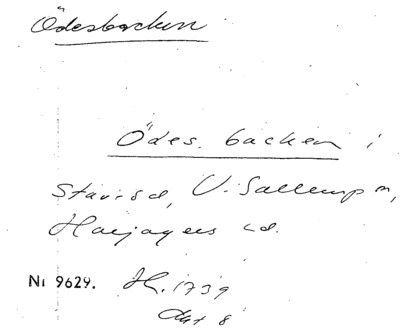 Ödesbacken
Ödes. backen i
V. Sallerup sn,
Harjagers hd.
Nr 9629. H. 1739